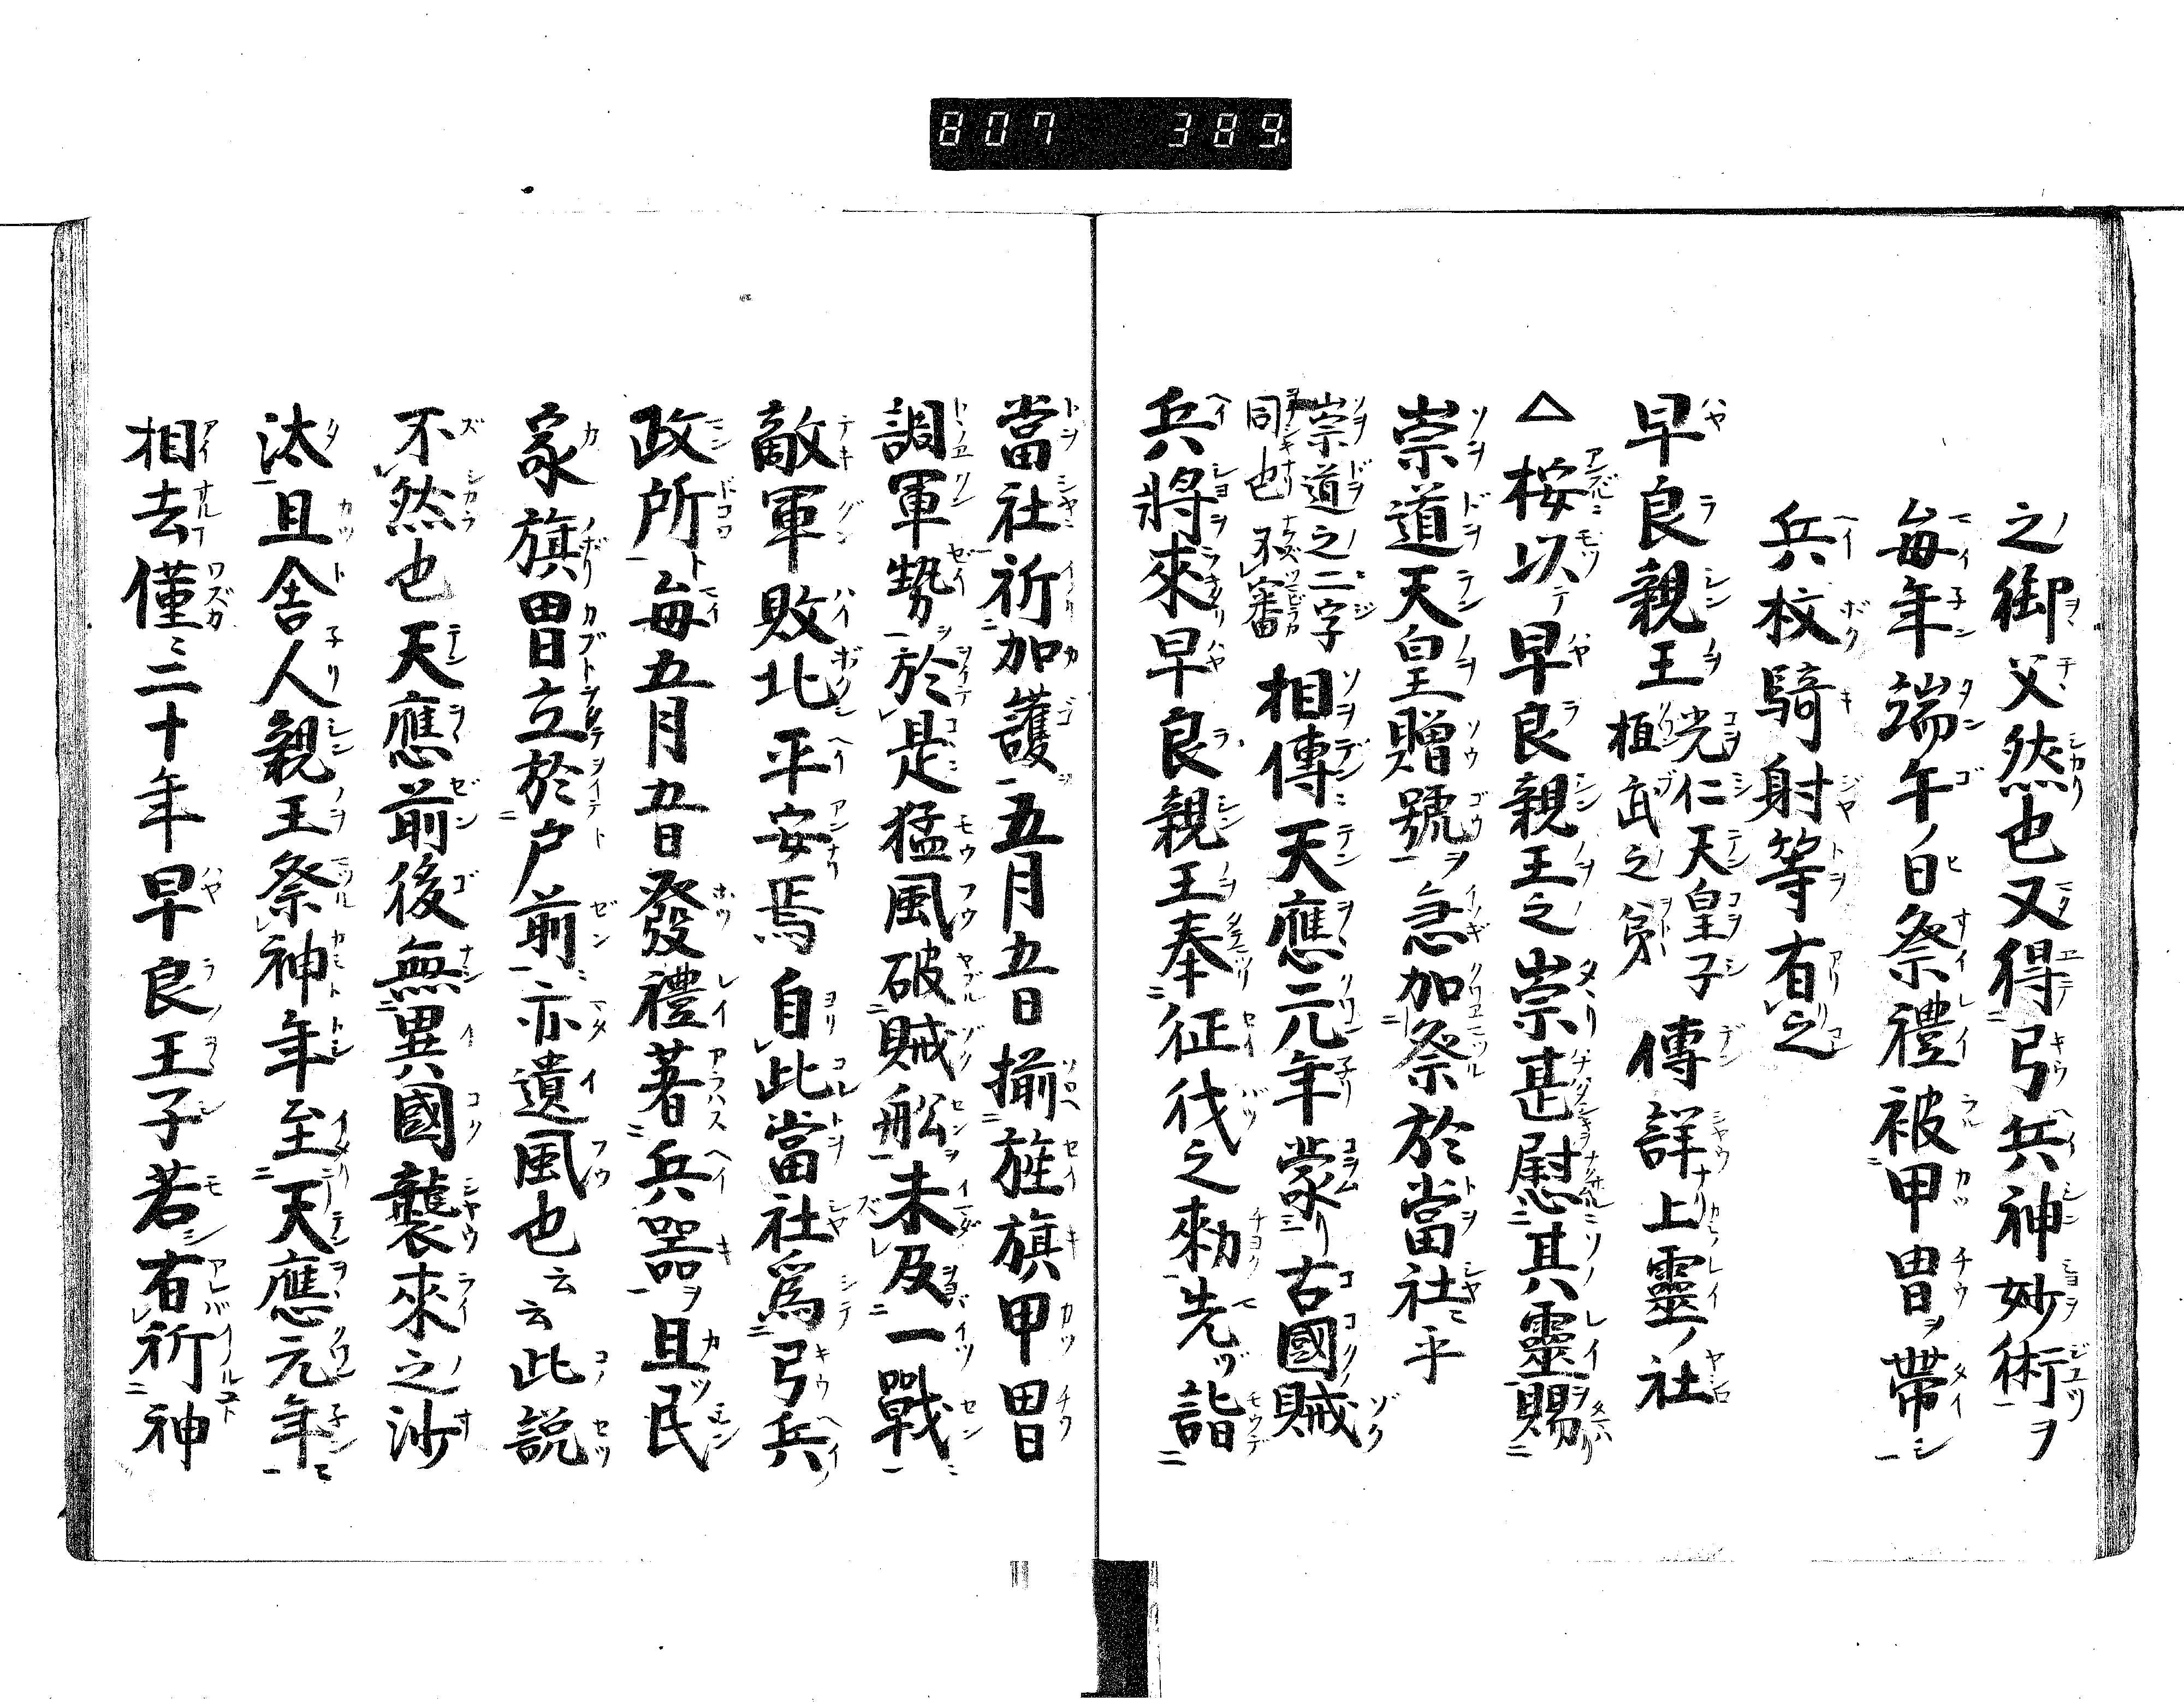 807 389
之御父然也又得弓兵神妙術ヲ
毎年端午ノ日祭禮被甲冑ヲ帶シ
兵杖騎射等有之
早良親王光仁天皇子桓武之弟 傳詳上靈ノ社
△桉以テ早良親王之崇甚慰其靈賜
崇道天皇贈號ヲ急加祭於當社乎
崇道之二字同也不審 相傳天應元年蒙リ古國賊
兵將來早良親王奉征伐之勅先ヅ詣
當社祈加護五月五日揃旌旗甲冑
調軍勢於是猛風破賊舩未及一戰
敵軍敗北平安焉自此當社爲弓兵
政所毎五月五日發禮著兵器ヲ且ツ民
家旗冑立於戸前亦遺風也云云此説
不然也天應前後無異國襲來之沙
汰且舎人親王祭神年至天應元年
相去僅ニ二十年早良王子若有祈神